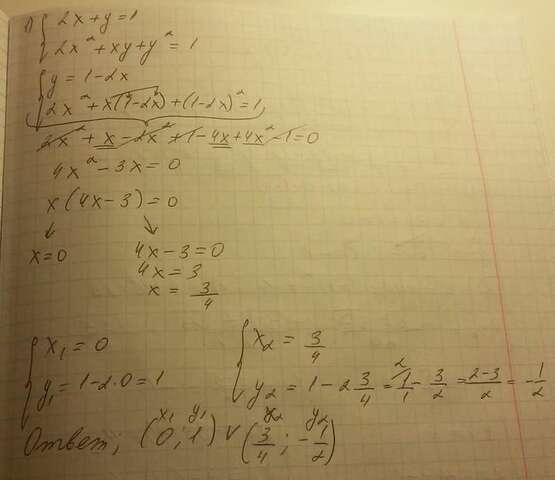 1) { 2x + y = 1
2x² + xy + y² = 1
{ y = 1 - 2x
2x² + x(1 - 2x) + (1 - 2x)² = 1,
2x² + x - 2x² + 1 - 4x + 4x² - 1 = 0
4x² - 3x = 0
x(4x - 3) = 0
↓ ↘
x = 0 4x - 3 = 0
4x = 3
x = 3/4
{ x₁ = 0 { x₂ = 3/4
y₁ = 1 - 2·0 = 1 y₂ = 1 - 2 3/4 = ²⁄1/1 - 3/2 = 2-3/2 = -1/2
x₁ y₁ x₂ y₂
Ответ; (0; 1) ∨ (3/4; -1/2)